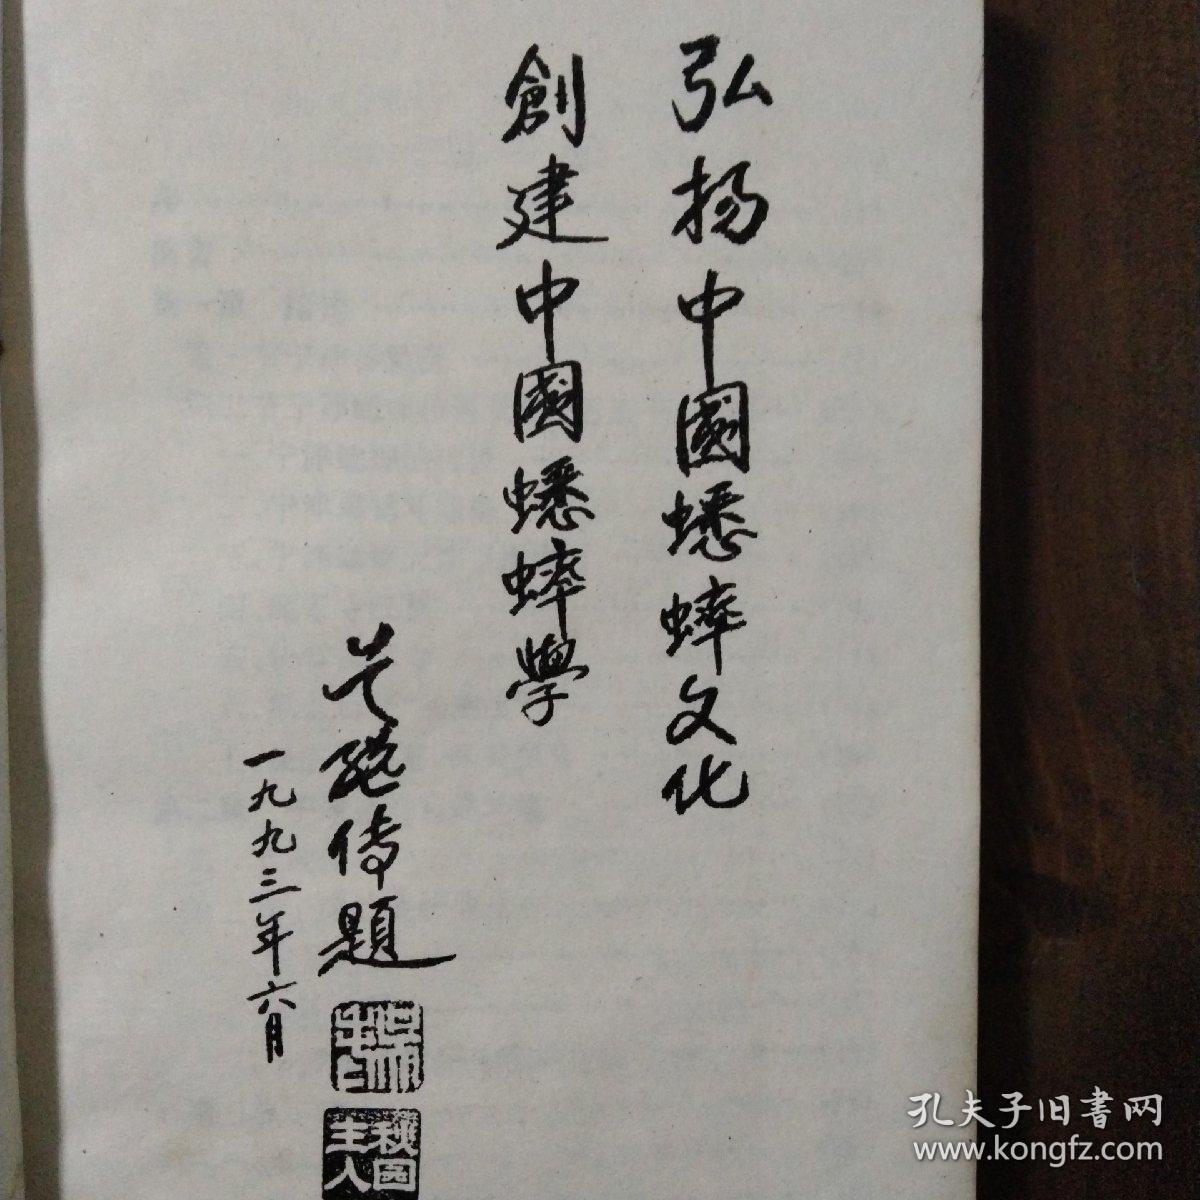 弘扬中國蟋蟀文化
創建中國蟋蟀學
吴继传題
一九九三年六月
秋园主人
孔夫子旧書网
www.kongfz.com